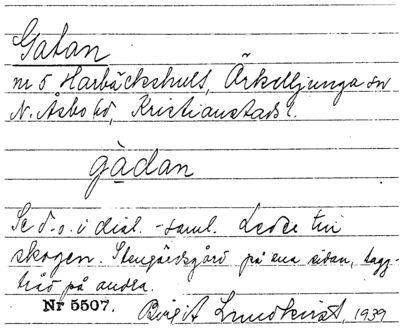 Gatan
nr 5 Harbäckshult, Örkelljunga sn
N. Åsbo hd, Kristianstads l.
gàdan
Se d.o. i dial.-saml. Leder till
skogen. Stengärdsgård på ena sidan, tagg-
tråd på andra.
Nr 5507. Birgit Lundkvist, 1939